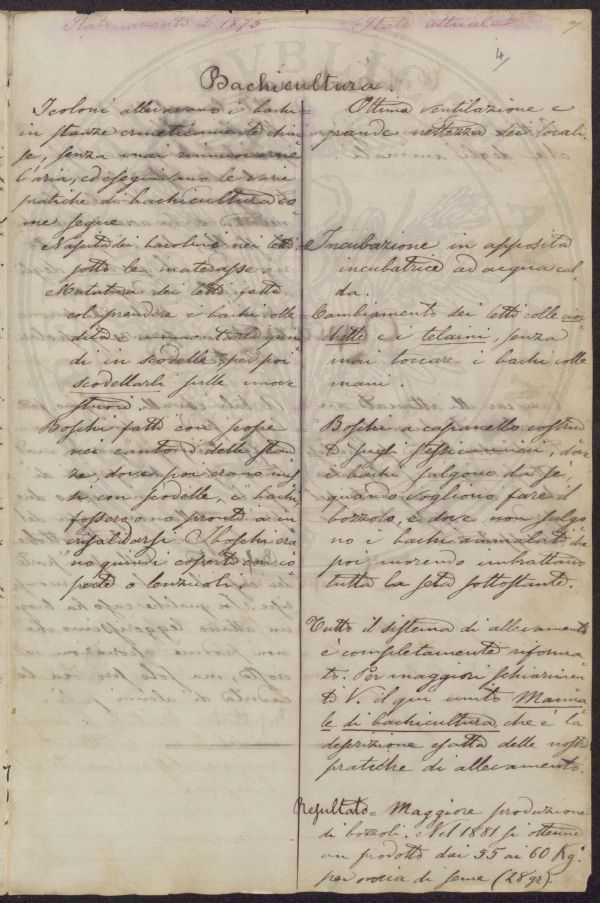 Stato avanti il 1875
Stato attuale
4
Bachicultura.
I coloni allevavano i bachi
in stanze ermeticamente chiu=
se, senza mai rinnovarne
l'aria, ed eseguivano le varie
pratiche di bachicultura co
me segue
Nascita dei bacolini nei letti
sotto le materasse.
Mutatura dei letti fatta
col prendere i bachi colle
dita e metterli quin
di in scodelle, per poi
scodellarli sulle nuove
stuoie.
Boschi fatti con scope
nei cantoni delle stan
ze, dove poi erano mes
si, con scodelle, i bachi,
fossero o no pronti a in
crisaldarsi. I boschi era
no quindi coperti con co
perte o lenzuoli.
Ottima ventilazione e
grande nettezza dei locali.
Incubazione in apposita
incubatrice ad acqua cal
da.
Cambiamento dei letti colle
e i telaini, senza
mai toccare i bachi colle
mani.
Boschi a capannello costrui
ti sugli stessi cannicci, dove
i bachi salgono da se,
quando vogliono fare il
bozzolo, e dove non salgo
no i bachi ammalati che
poi morendo imbrattano
tutta la seta sottostante.
Tutto il sistema di allevamento
è completamente riforma
to. Per maggiori schiarimen
ti V. il qui unito Manua
le di bachicultura, che è la
descrizione esatta delle nostre
pratiche di allevamento.
Resultato = Maggiore produzione
di bozzoli. Nel 1881 si ottenne
un prodotto dai 55 ai 60 Kg.
per oncia di seme (28 gr).